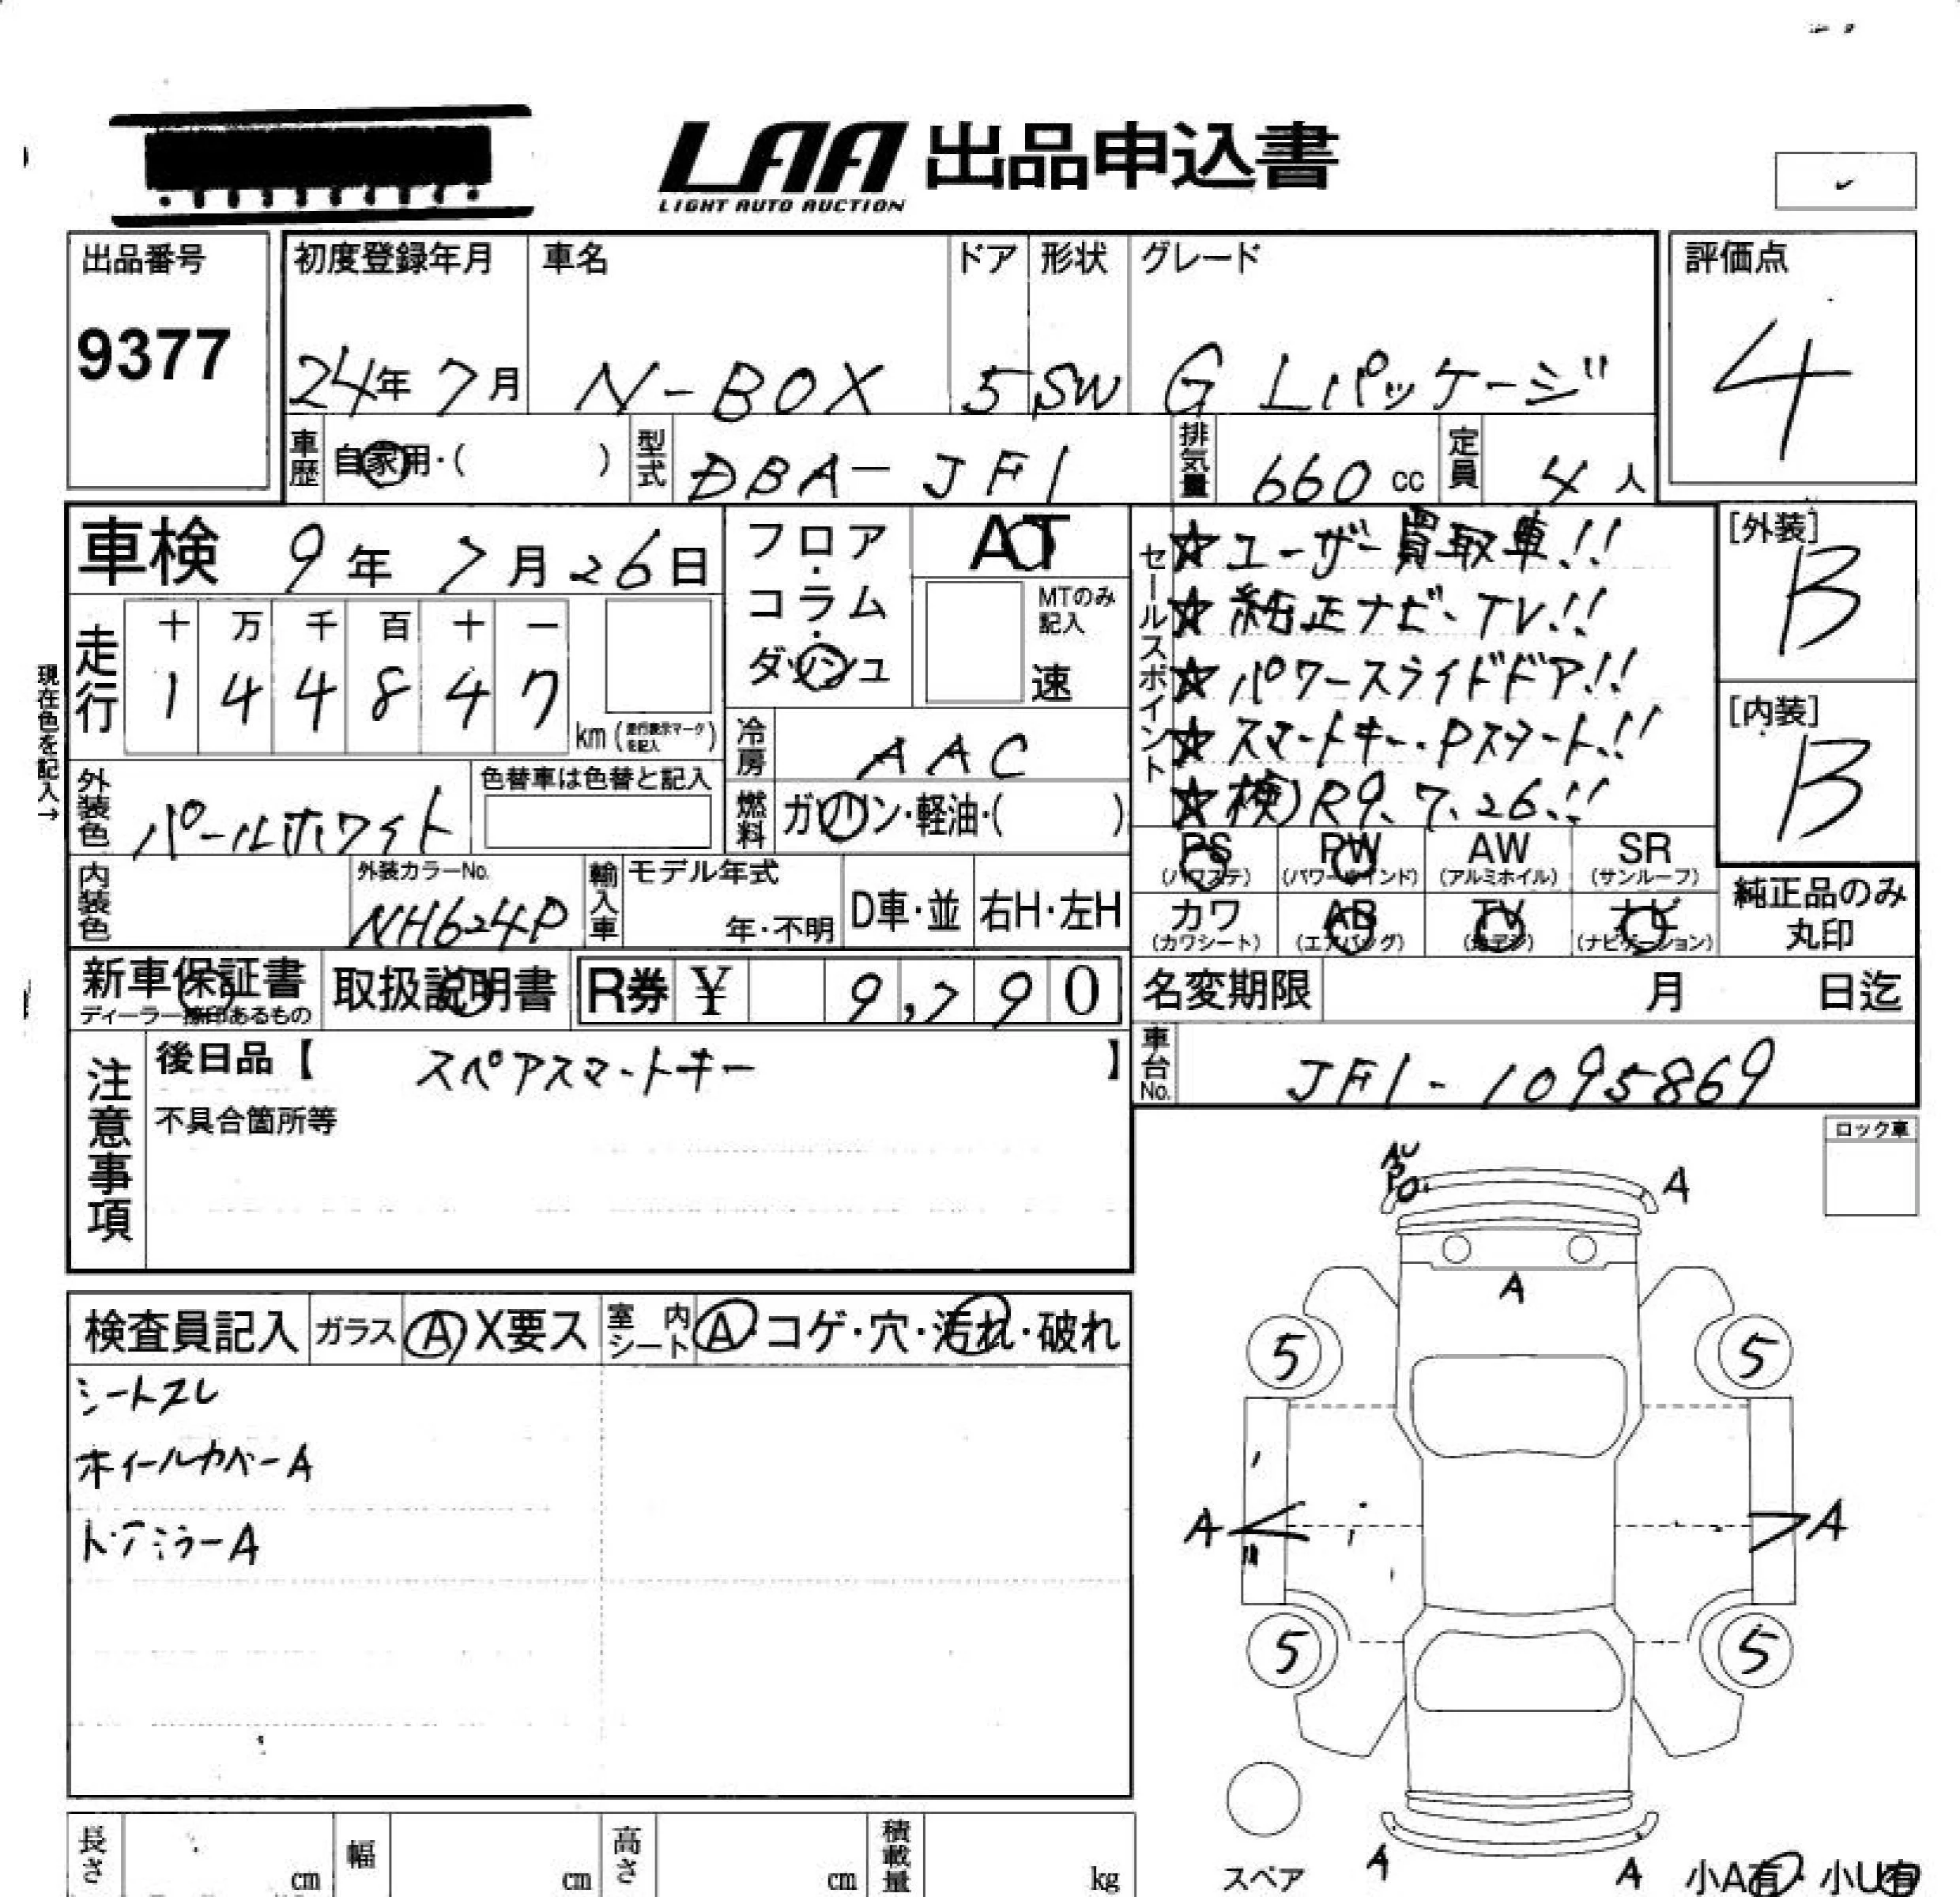 LAA 出品申込書
LIGHT AUTO AUCTION
出品番号
9377
初度登録年月
24年 7月
車名
N-BOX
ドア
5
形状
SW
グレード
G Lパッケージ
評価点
4
車歴 自家用・( )
型式 DBA-JF1
排気量 660 cc
定員 4 人
車検 9年 7月 26日
走行
十 万 千 百 十 一
1 4 4 8 4 7
km
現在色を記入→
外装色 パールホワイト
色替車は色替と記入
内装色
外装カラーNo.
NH624P
フロア・コラム・ダッシュ
AT
MTのみ記入
速
冷房 AAC
燃料 ガソリン・軽油・( )
輸入車 モデル年式
年・不明
D車・並 右H・左H
セールスポイント
☆ユーザー買取車!!
☆純正ナビ・TV!!
☆パワースライドドア!!
☆スマートキー・Pスタート!!
☆検)R9.7.26!!
[外装]
B
[内装]
B
PS (パワステ)
PW (パワーウインド)
AW (アルミホイル)
SR (サンルーフ)
カワ (カワシート)
AB (エアバッグ)
TV
ナビ (ナビゲーション)
純正品のみ丸印
新車保証書
ディーラー捺印あるもの
取扱説明書
R券 ¥ 9,790
名変期限 月 日迄
車台No. JF1-1095869
注意事項
後日品【 スペアスマートキー 】
不具合箇所等
ロック車
検査員記入 ガラス A X要ス
室内シート A・コゲ・穴・汚れ・破れ
シートスレ
ホイールカバーA
ドアミラーA
A
A
5
5
A
A
5
5
スペア
A
A
小A有・小U有
長さ cm
幅 cm
高さ cm
積載量 kg